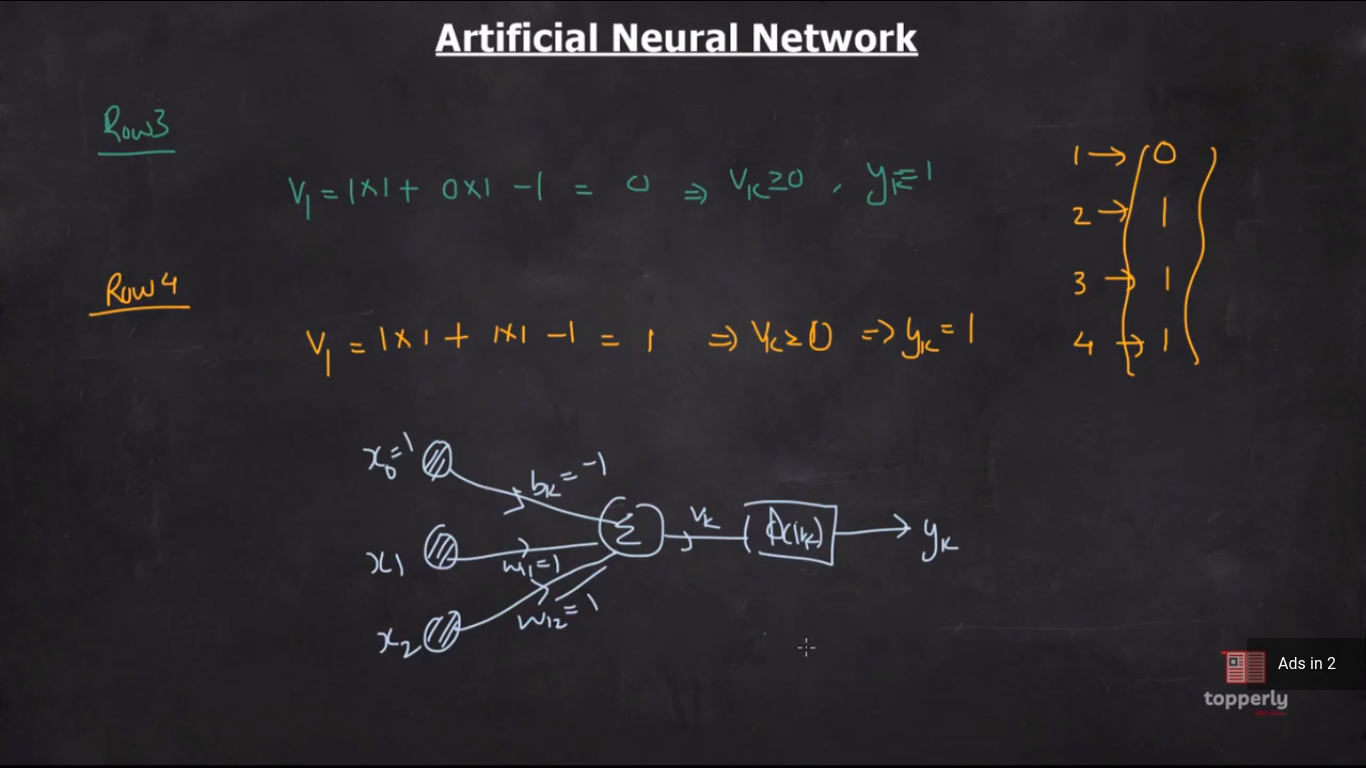 Artificial Neural Network
Row3
V₁ = 1×1 + 0×1 -1 = 0 ⇒ Vₖ≥0 , yₖ=1
Row4
V₁ = 1×1 + 1×1 -1 = 1 ⇒ Vₖ≥0 ⇒ yₖ=1
1 → 0
2 → 1
3 → 1
4 → 1
x₀=1
bₖ=-1
x₁
w₁=1
Σ
Vₖ
yₖ
x₂
w₁₂=1
Ads in 2
topperly